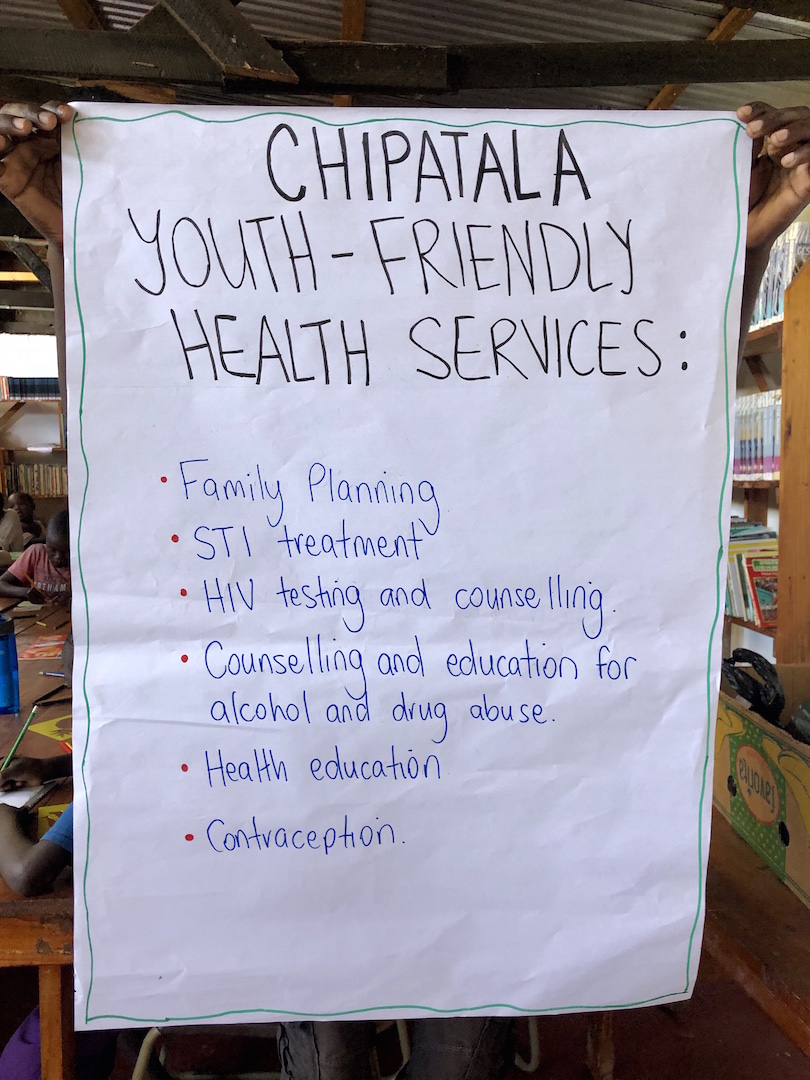 CHIPATALA
YOUTH-FRIENDLY
HEALTH SERVICES:
• Family Planning
• STI treatment
• HIV testing and counselling.
• Counselling and education for
alcohol and drug abuse.
• Health education
• Contraception.